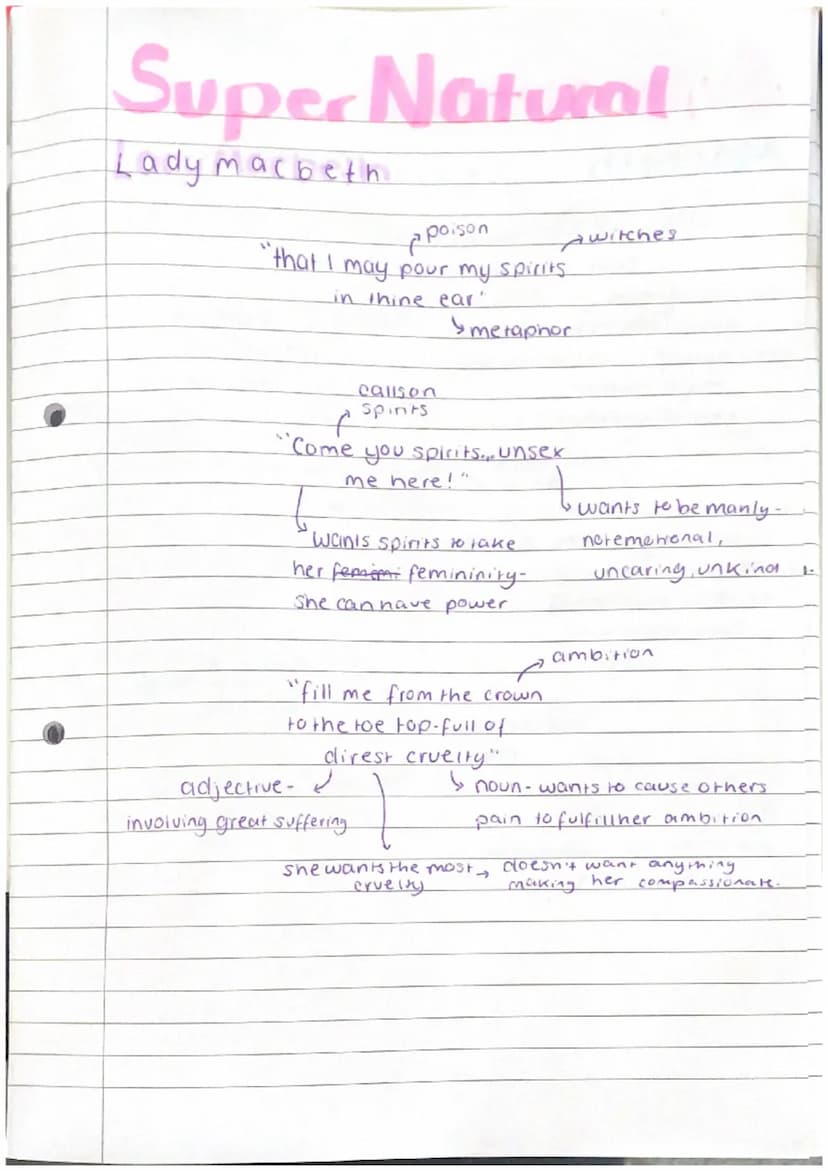 SuperNatural
Lady macbeth
poison
witches
"that I may pour my spirits
in thine ear"
metaphor
calls on
spirits
"Come you spirits... unsex
me here!"
wants to be manly-
not emotional,
uncaring, unkind
wants spirits to take
her femininity-
she can have power
ambition
"fill me from the crown
to the toe top-full of
direst cruelty"
adjective-
involving great suffering
noun- wants to cause others
pain to fulfill her ambition
she wants the most
cruelty
doesn't want anything
making her compassionate.